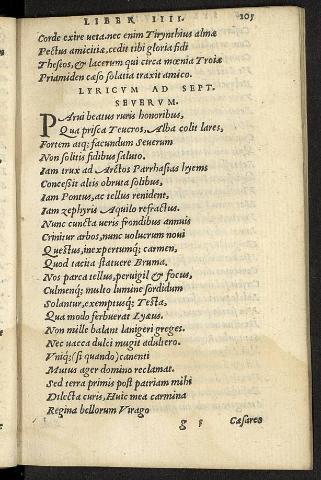 LIBER IIII. 105
Corde exire ueta. nec enim Tirynthius almæ
Pectus amicitiæ, cedit tibi gloria fidi
Theseos, & lacerum qui circa mœnia Troiæ
Priamiden cæso solatia traxit amico.
LYRICVM AD SEPT.
SEVERVM.
PArui beatus ruris honoribus,
Qua prisca Teucros, Alba colit lares,
Fortem atq; facundum Seuerum
Non solitis fidibus saluto.
Iam trux ad Arctos Parrhasias hyems
Concessit altis obruta solibus,
Iam Pontus, ac tellus renident,
Iam zephyris Aquilo refractus.
Nunc cuncta ueris frondibus annuis
Crinitur arbos, nunc uolucrum noui
Questus, inexpertumq; carmen,
Quod tacita statuere Bruma.
Nos parca tellus, peruigil & focus,
Culmenq; multo lumine sordidum
Solantur, exemptusq; Testa,
Qua modo ferbuerat Lyæus.
Non mille balant lanigeri greges.
Nec uacca dulci mugit adultero.
Vniq; (si quando) canenti
Mutus ager domino reclamat.
Sed terra primis post patriam mihi
Dilecta curis, Huic mea carmina
Regina bellorum Virago
g 5 Cæsareo